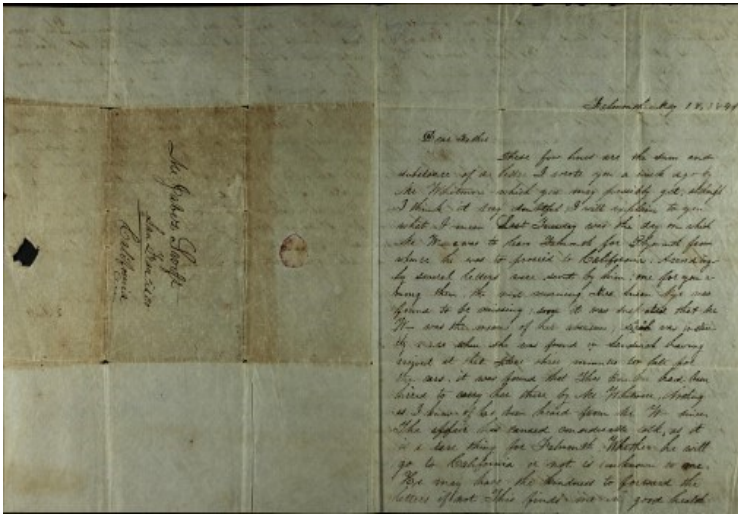 Mr Jabez Swift
San Francisco
California
Falmouth May 18, 184
Dear Father
These few lines are the sum and
substance of a letter I wrote you a week ago by
Mr Whitmore which you may possibly get, although
I think it very doubtful I will explain to you
what I mean Last Tuesday was the day on which
Mr W was to leave Falmouth for Plymouth from
whence he was to proceed to California. According-
ly several letters were sent by him, one for you a-
mong them, the next morning Miss Susan Nye was
found to be missing; soon it was that Mr
W was the means of her absence, was
when she was found in Sandwich having
arrived at that place three minutes too late for
the cars, it was found that had been
hired to carry her there by Mr Whitmore, Nothing
as I know of has been heard from Mr W since.
The affair has caused considerable talk, as it
is a rare thing for Falmouth Whether he will
go to California or not is unknown to me.
He may have the kindness to forward the
letters if not This finds me in good health